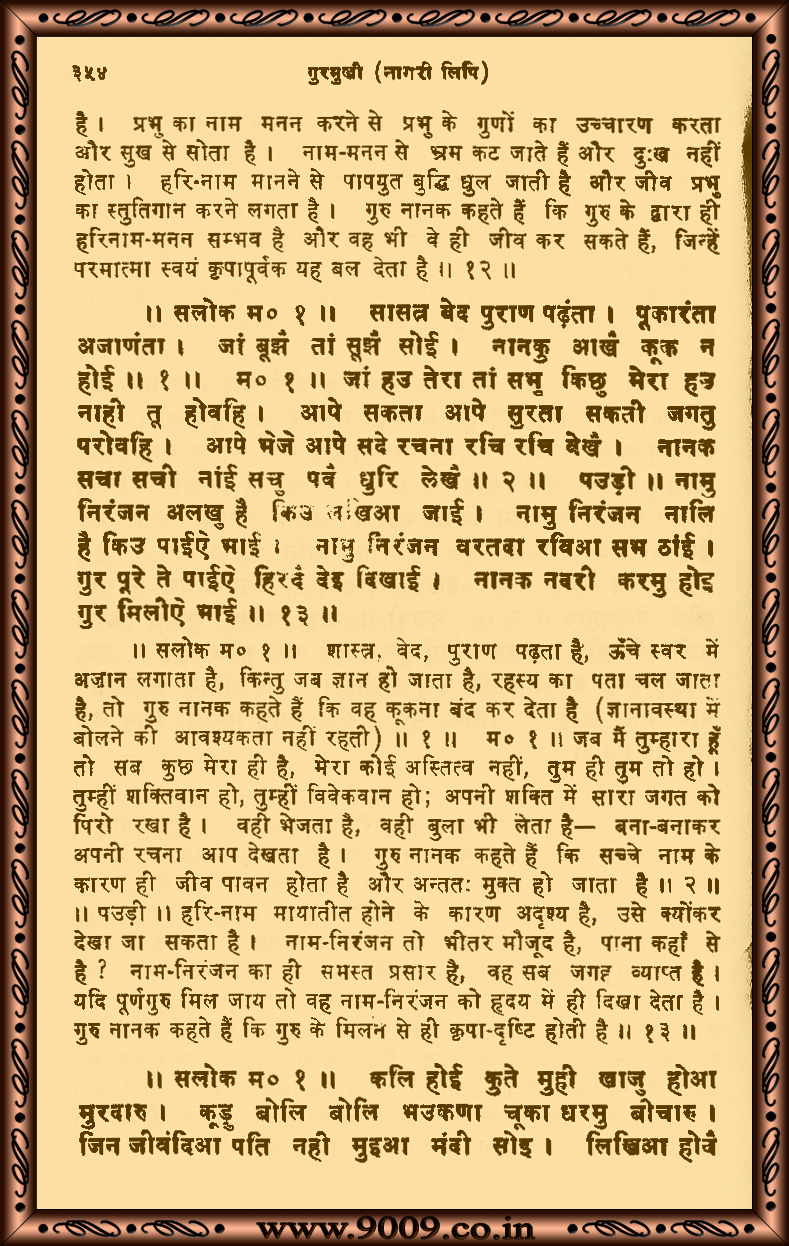 ३५४ गुरमुखी (नागरी लिपि)
है। प्रभु का नाम मनन करने से प्रभु के गुणों का उच्चारण करता
और सुख से सोता है। नाम-मनन से भ्रम कट जाते हैं और दुःख नहीं
होता। हरि-नाम मानने से पापयुत बुद्धि धुल जाती है और जीव प्रभु
का स्तुतिगान करने लगता है। गुरु नानक कहते हैं कि गुरु के द्वारा ही
हरिनाम-मनन सम्भव है और वह भी वे ही जीव कर सकते हैं, जिन्हें
परमात्मा स्वयं कृपापूर्वक यह बल देता है॥ १२॥
॥ सलोक म० १॥ सासत्र बेद पुराण पढ़ंता। पूकारंता
अजाणंता। जां बूझै तां सूझै सोई। नानकु आखै कूक न
होई॥ १॥ म० १॥ जां हउ तेरा तां सभु किछु मेरा हउ
नाही तू होवहि। आपे सकता आपे सुरता सकती जगतु
परोवहि। आपे भेजे आपे सदे रचना रचि रचि वेखै। नानक
सचा सची नांई सचु पवै धुरि लेखै॥ २॥ पउड़ी॥ नामु
निरंजन अलखु है किउ लखिआ जाई। नामु निरंजन नालि
है किउ पाईऐ भाई। नामु निरंजन वरतदा रविआ सभ ठांई।
गुर पूरे ते पाईऐ हिरदै देइ दिखाई। नानक नदरी करमु होइ
गुर मिलीऐ भाई॥ १३॥
॥ सलोक म० १॥ शास्त्र, वेद, पुराण पढ़ता है, ऊँचे स्वर में
अज़ान लगाता है, किन्तु जब ज्ञान हो जाता है, रहस्य का पता चल जाता
है, तो गुरु नानक कहते हैं कि वह कूकना बंद कर देता है (ज्ञानावस्था में
बोलने की आवश्यकता नहीं रहती)॥ १॥ म० १॥ जब मैं तुम्हारा हूँ
तो सब कुछ मेरा ही है, मेरा कोई अस्तित्व नहीं, तुम ही तुम तो हो।
तुम्हीं शक्तिवान हो, तुम्हीं विवेकवान हो; अपनी शक्ति में सारा जगत को
पिरो रखा है। वही भेजता है, वही बुला भी लेता है— बना-बनाकर
अपनी रचना आप देखता है। गुरु नानक कहते हैं कि सच्चे नाम के
कारण ही जीव पावन होता है और अन्ततः मुक्त हो जाता है॥ २॥
॥ पउड़ी॥ हरि-नाम मायातीत होने के कारण अदृश्य है, उसे क्योंकर
देखा जा सकता है। नाम-निरंजन तो भीतर मौजूद है, पाना कहाँ से
है? नाम-निरंजन का ही समस्त प्रसार है, वह सब जगह व्याप्त है।
यदि पूर्णगुरु मिल जाय तो वह नाम-निरंजन को हृदय में ही दिखा देता है।
गुरु नानक कहते हैं कि गुरु के मिलन से ही कृपा-दृष्टि होती है॥ १३॥
॥ सलोक म० १॥ कलि होई कुते मुही खाजु होआ
मुरदारु। कूड़ु बोलि बोलि भउकणा चूका धरमु बीचारु।
जिन जीवंदिआ पति नही मुइआ मंदी सोइ। लिखिआ होवै
www.9009.co.in